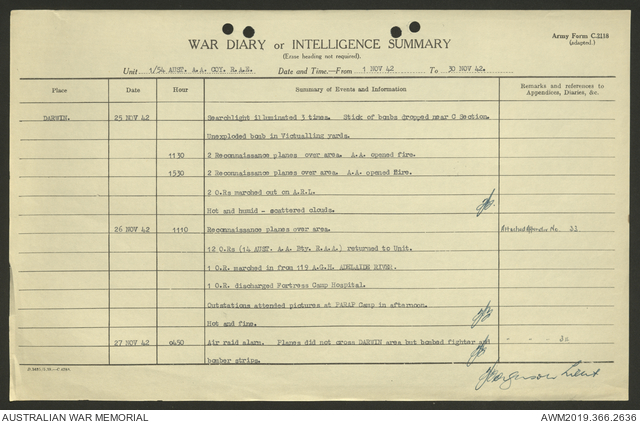 WAR DIARY or INTELLIGENCE SUMMARY
Army Form C.2118
(adapted.)
(Erase heading not required).
Unit 1/54 AUST. A.A. COY. R.A.E. Date and Time.—From 1 NOV 42 To 30 NOV 42.
Place Date Hour Summary of Events and Information Remarks and references to Appendices, Diaries, &c.
DARWIN. 25 NOV 42 Searchlight illuminated 3 times. Stick of bombs dropped near C Section.
Unexploded bomb in Victualling yards.
1130 2 Reconnaissance planes over area. A.A. opened fire.
1530 2 Reconnaissance planes over area. A.A. opened fire.
2 O.Rs marched out on A.R.L.
Hot and humid - scattered clouds.
26 NOV 42 1110 Reconnaissance planes over area. Attached Appendix No. 31
12 O.Rs (14 AUST. A.A. Bty. R.A.A.) returned to Unit.
1 O.R. marched in from 119 A.G.H. ADELAIDE RIVER.
1 O.R. discharged Fortress Camp Hospital.
Outstations attended pictures at PARAP Camp in afternoon.
Hot and fine.
27 NOV 42 0450 Air raid alarm. Planes did not cross DARWIN area but bombed fighter and
bomber strips.
Lieut
AUSTRALIAN WAR MEMORIAL AWM2019.366.2636